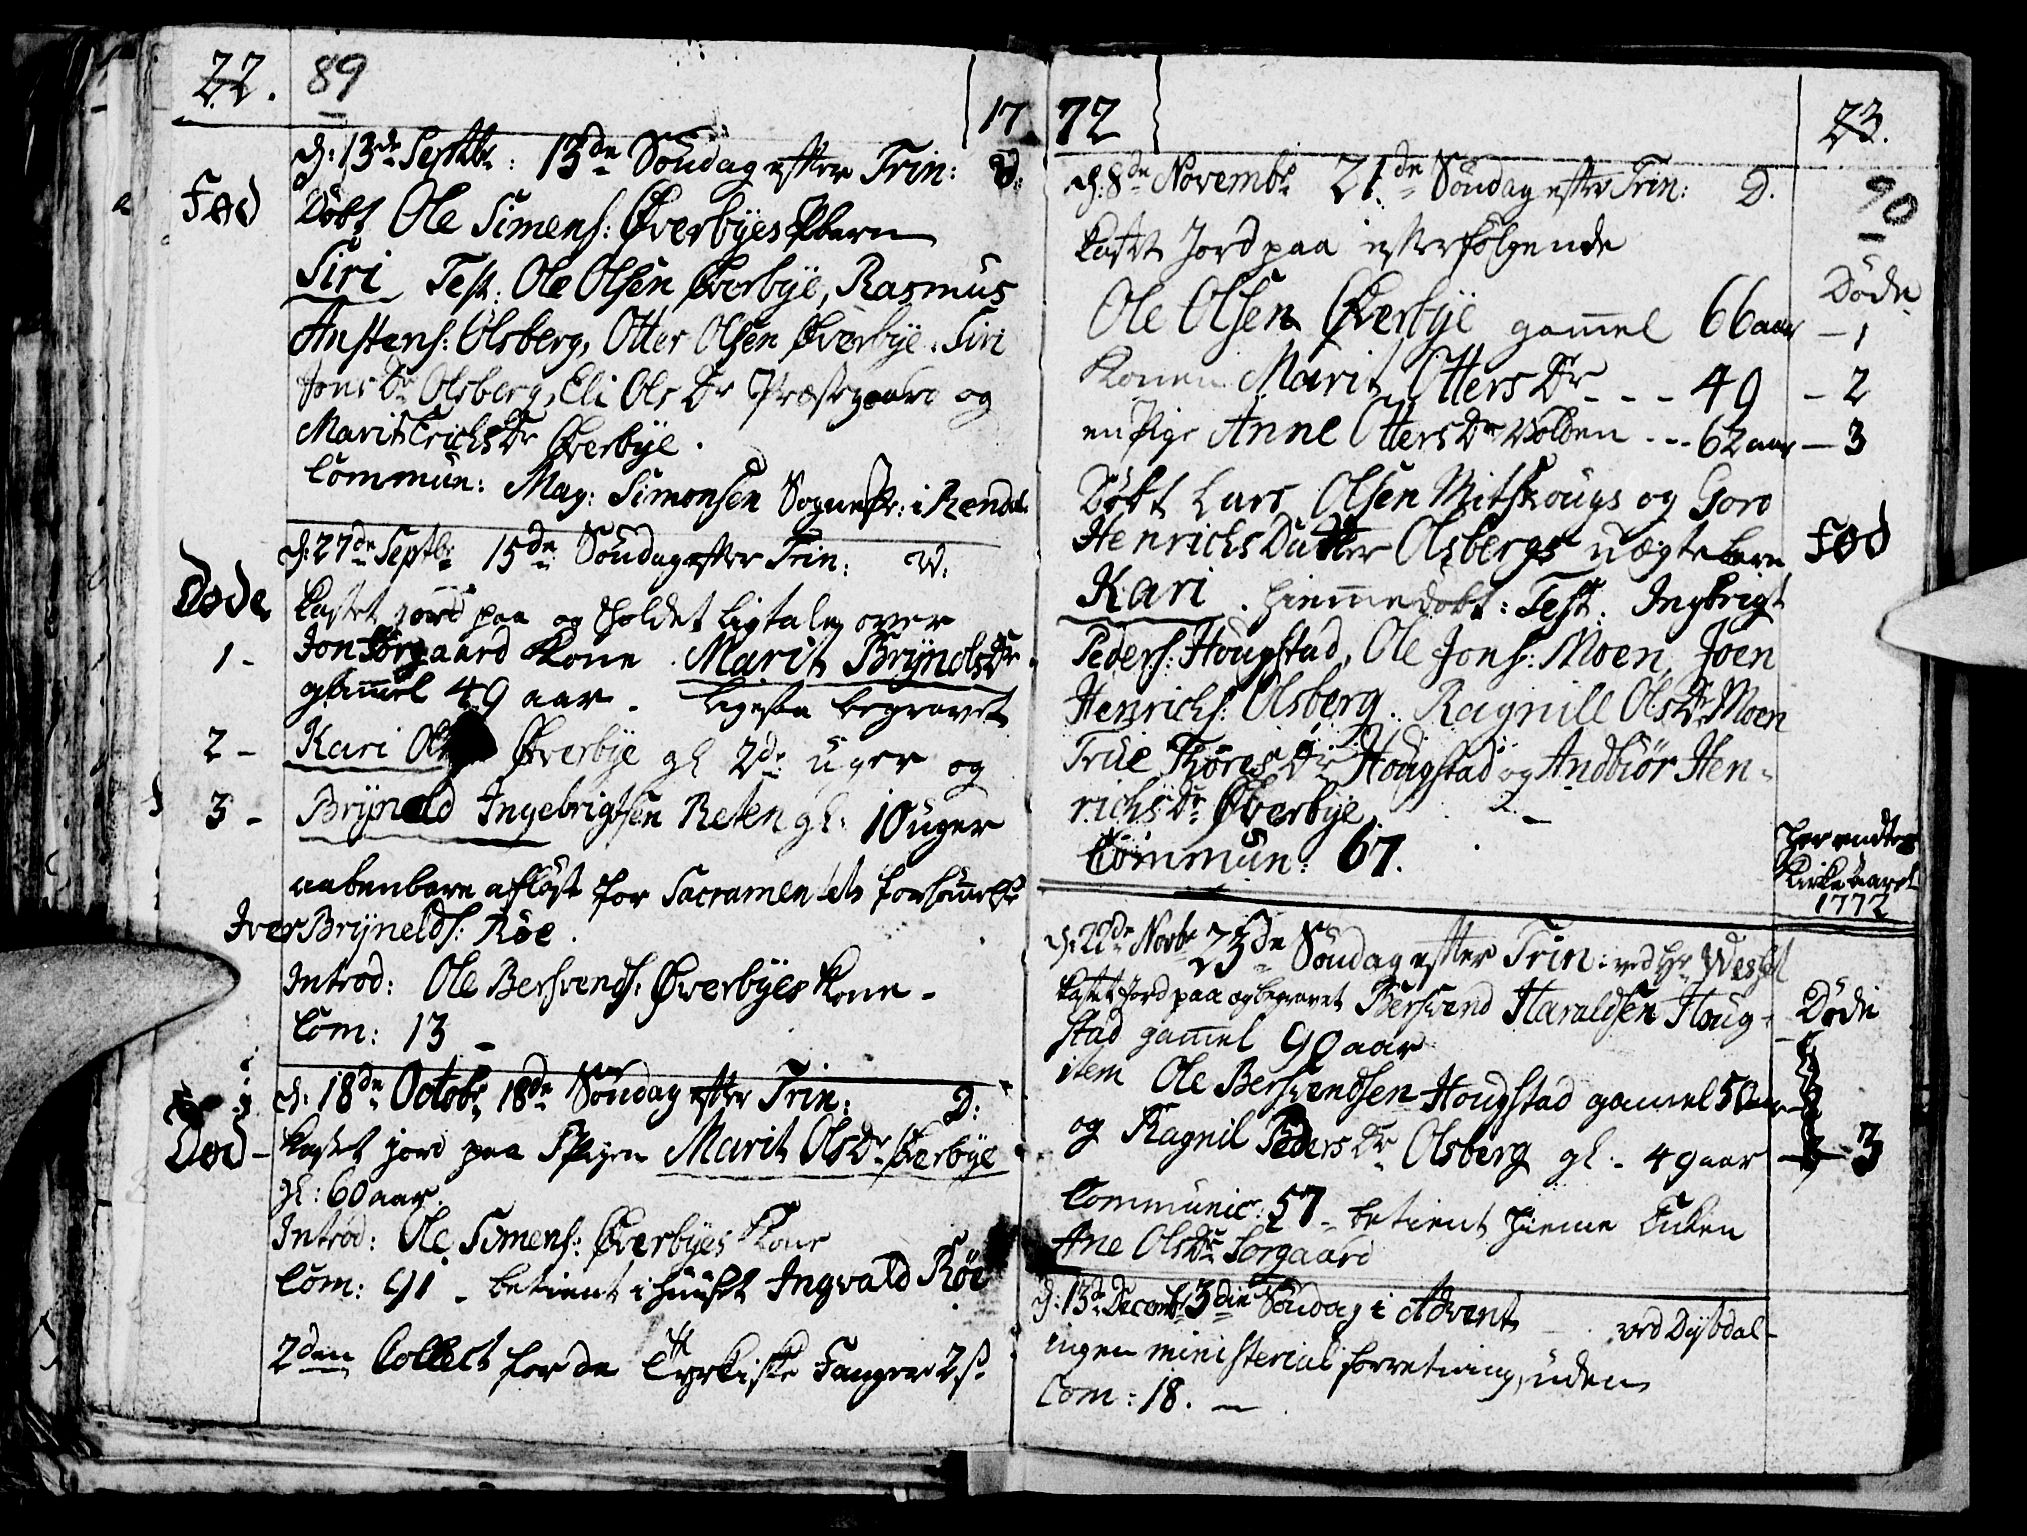 22. 89
17
d: 13de Septbr: 13de Søndag efter Trin: W:
Fød
Døbt Ole Simens: Øverbyes Pbarn
Siri Test: Ole Olsen Øverbye, Rasmus
Anstens: Olsberg, Otter Olsen Øverbye. Siri
Jons Dr Olsberg, Eli Ols Dr Præstgaard og
Marit Erichs Dr Øverbye.
Commun: Mag: Simonsen Sognepr: i Rendal
d: 27de Septbr 15de Søndag efter Trin: W:
Døde
kastet jord paa og Holdet ligtale over
1 - Jon Sorgaard Kone Marit Brynols Dr
gammel 49 aar. ligesaa begravet
2 - Kari Øverbye gl 2de uger og
3 - Bryneld Ingebrigtsen Reten gl: 10 uger
aabenbare afløst for Sacramentets forsømelse
Iver Brynelds: Røe.
Introd: Ole Bersvends: Øverbyes Kone -
Com: 13
d. 18de Octobr 18de Søndag efter Trin: D:
Død - kastet jord paa Pigen Marit Ols Dr Øverbye
gl: 60 aar.
Introd: Ole Simens: Øverbyes Kone
Com: 91 - betient i Huuset Ingvald Røe
2den Collect for de Tyrkiske Fanger 2 s.
72
23.
90
d. 8de Novembr 21de Søndag efter Trin: D.
kastet Jord paa efterfølgende
Døde
Ole Olsen Øverbye gammel 66 aar - 1
Konen Marit Otters Dr - - - 49 - 2
en Pige Anne Otters Dr Volden - - - 62 aar - 3
Døbt Lars Olsen Mitskougs og Goro
Henrichs Datter Olsbergs uægte barn Fød
Kari. Hiemmedøbt: Test. Ingbrigt
Peders: Hougstad, Ole Jons: Moen, Joen
Henrichs: Olsberg. Ragnill Ols Dr Moen
True Thores Dr Hougstad og Andbiør Hen-
richs Dr Øverbye
Commun: 67.
Her endtes
Kirkeaaret
1772
d. 22de Novbr 23de Søndag efter Trin: ved Hr Wessel
kastet Jord paa og begravet Bersvend Haraldsen Houg- Døde
stad gammel 90 aar
item Ole Bersvendsen Hougstad gammel 50 aar
og Ragnil Peders Dr Olsberg gl: - 49 aar 3
Communic: 57 - betient Hieme Enken
Ane Ols Dr Sorgaard
d: 13de Decembr 3die Søndag i Advent ved Dysdal -
ingen ministerial forretning, uden
Com: 18. -